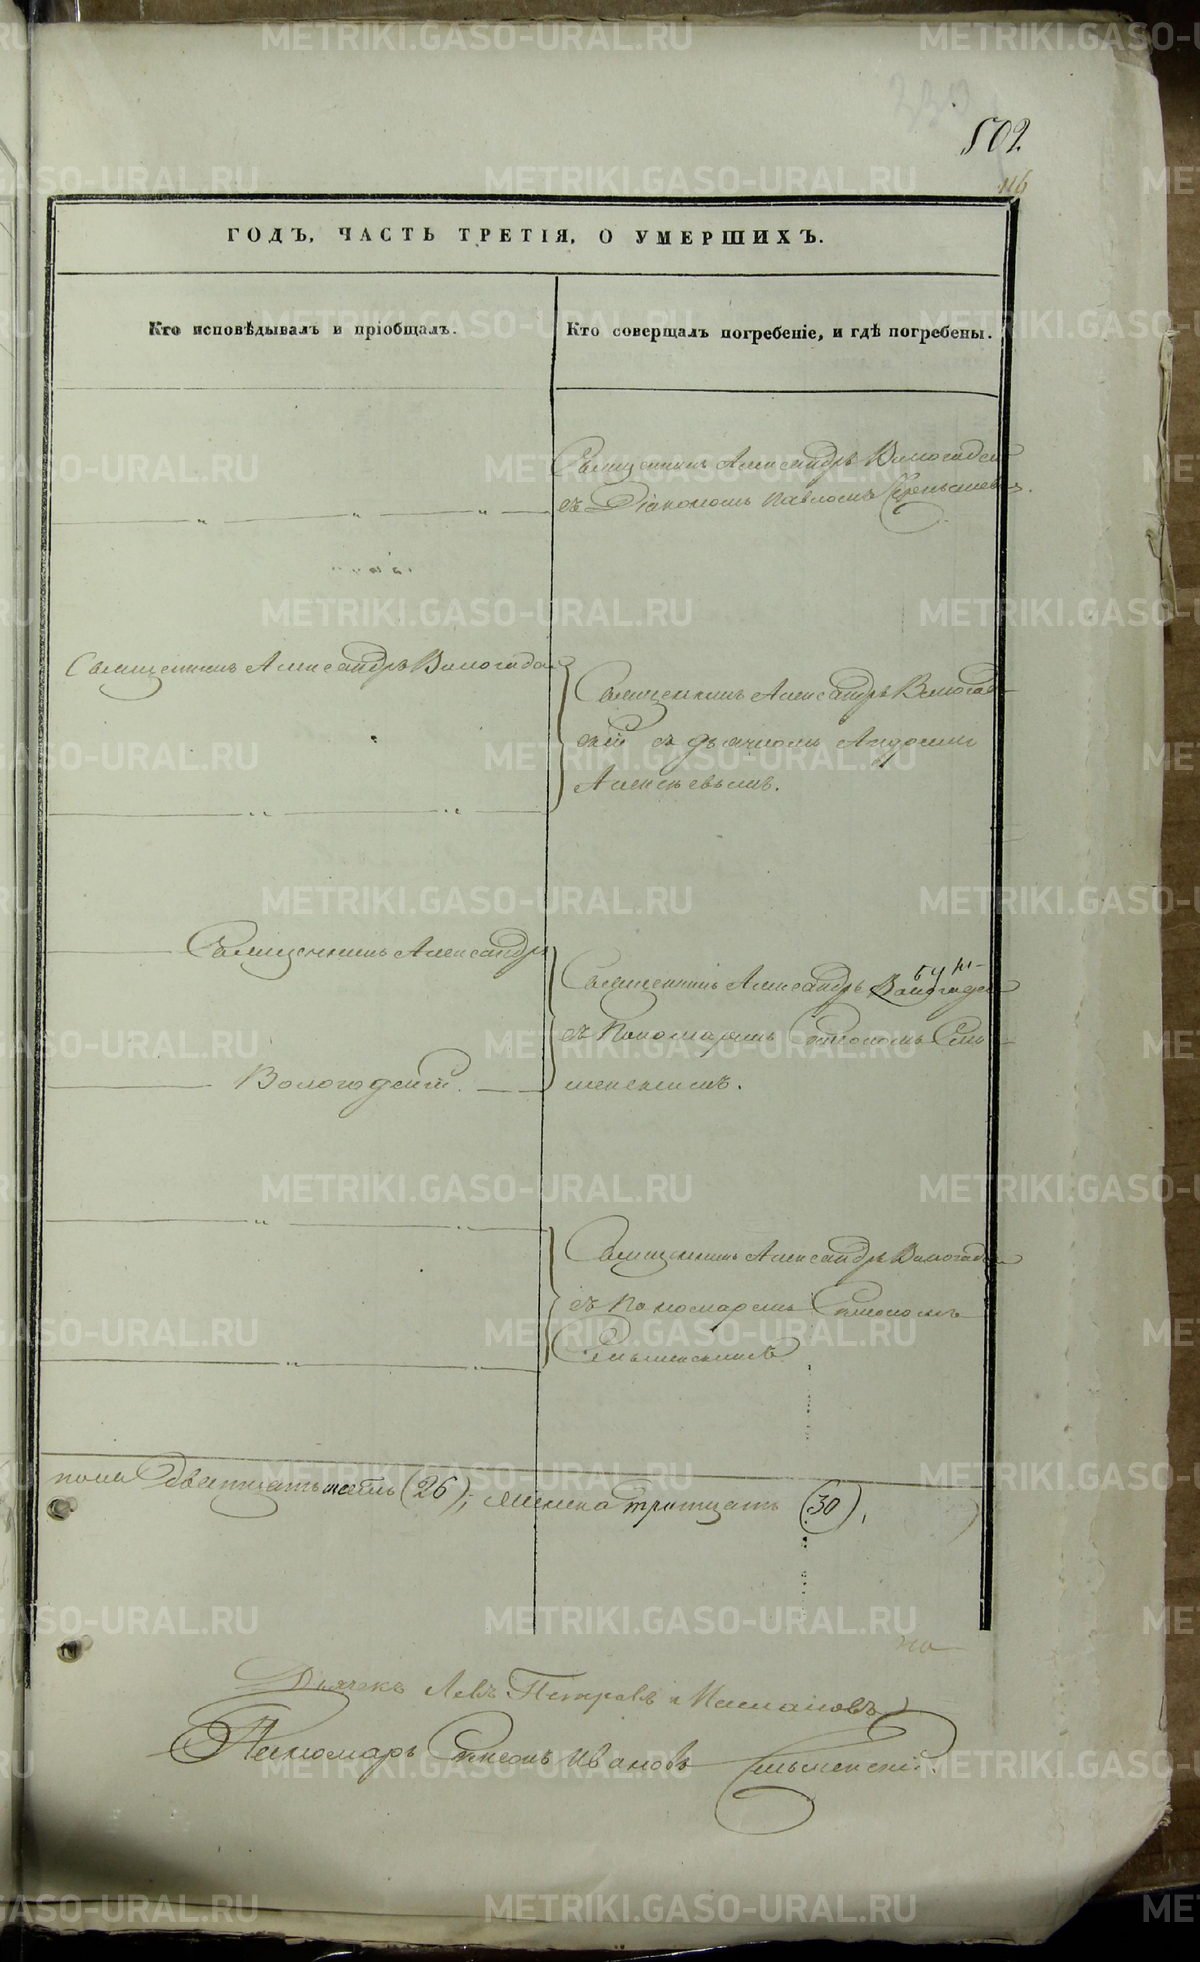 502
116
ГОДЪ, ЧАСТЬ ТРЕТІЯ, О УМЕРШИХЪ.
Кто исповѣдывалъ и пріобщалъ.
Кто совершалъ погребеніе, и гдѣ погребены.
Священникъ Александръ Вологодск
съ Діакономъ Павломъ
Священникъ Александръ Вологодск
Священникъ Александръ Вологод-
скій съ дьячкомъ
Алексѣевымъ.
Священникъ Александръ
Вологодскій.
Священникъ Александръ Вологодск
съ Пономаремъ Симеономъ
Священникъ Александръ Вологодск
съ Пономаремъ Симеономъ
пола дватцать (26); женска тритцать (30),
Дьячекъ Левъ Петровъ
Пономарь Симеонъ Ивановъ
METRIKI.GASO-URAL.RU